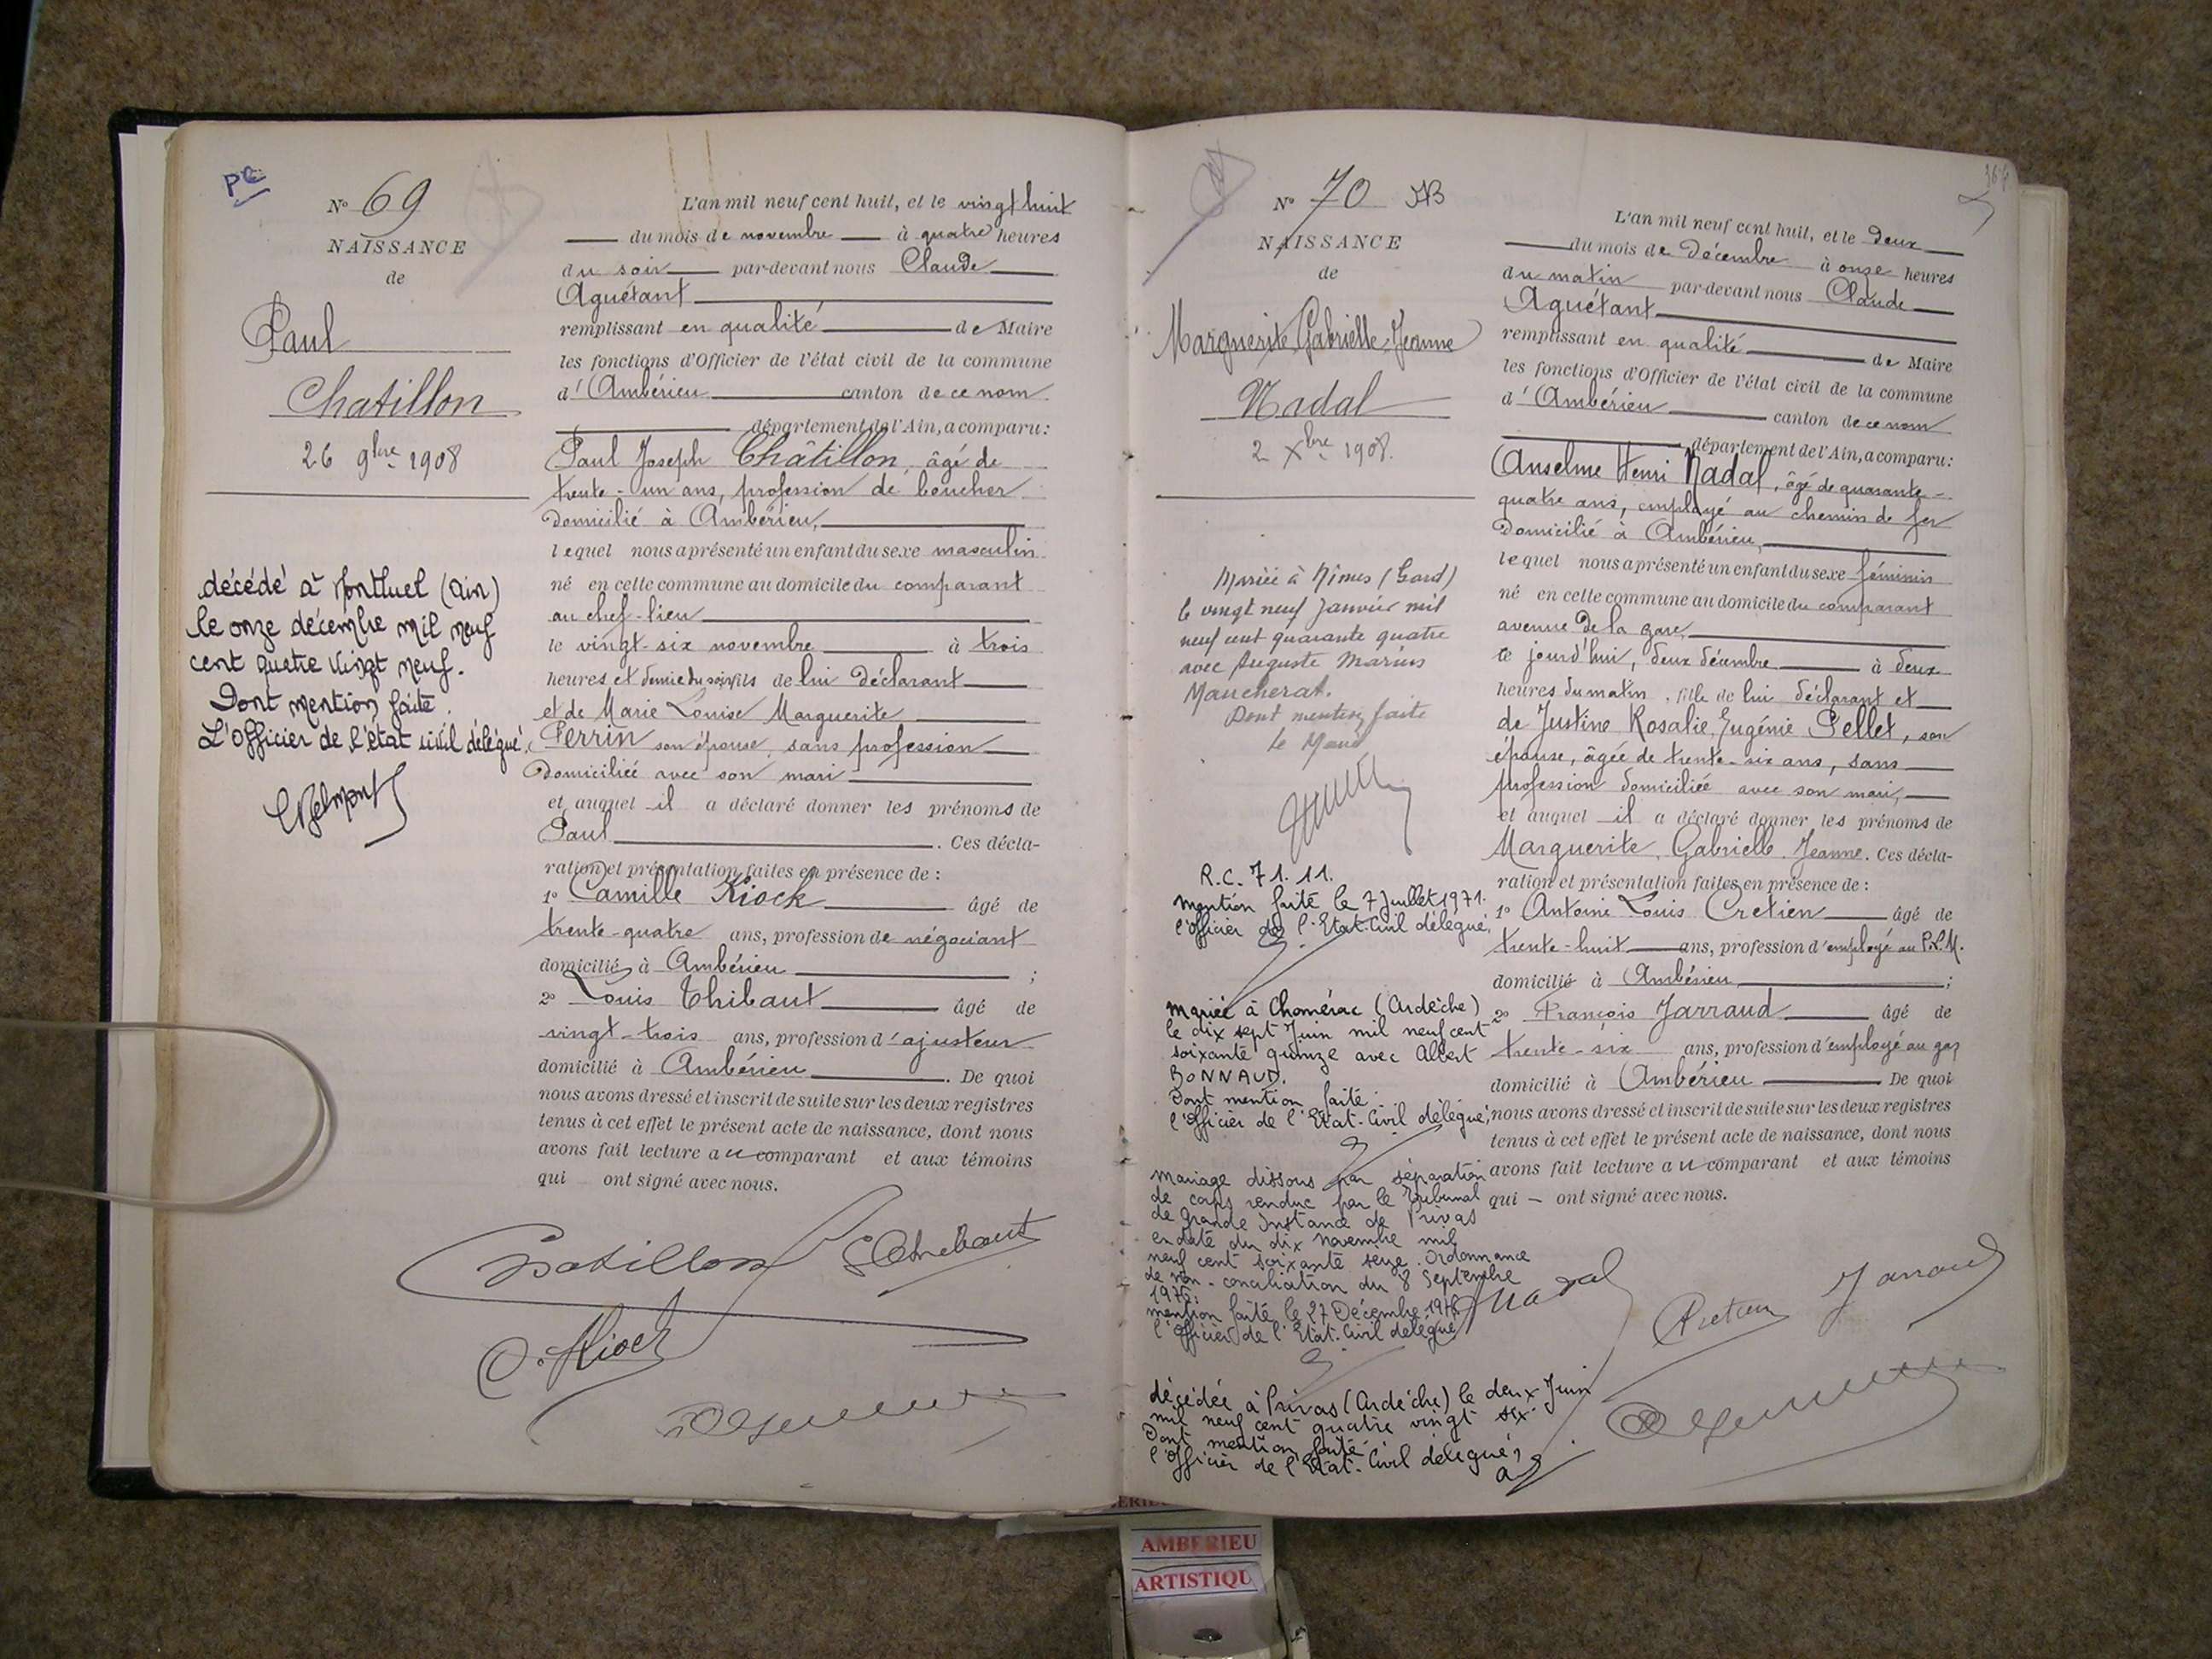 Pc
N° 69
NAISSANCE
de
Paul
Chatillon
26 9bre 1908
décédé à Montluel (Ain)
le onze décembre mil neuf
cent quatre vingt neuf.
Dont mention faite.
L'Officier de l'état civil délégué,
L'an mil neuf cent huit, et le vingt huit
du mois de novembre à quatre heures
du soir par-devant nous Claude
Aguétant
remplissant en qualité de Maire
les fonctions d'Officier de l'état civil de la commune
d'Ambérieu canton de ce nom
département de l'Ain, a comparu:
Paul Joseph Châtillon, âgé de
trente-un ans, profession de boucher
domicilié à Ambérieu,
lequel nous a présenté un enfant du sexe masculin
né en cette commune au domicile du comparant
au chef-lieu
le vingt-six novembre à trois
heures et demie du soir, fils de lui déclarant
et de Marie Louise Marguerite
Ferrin son épouse, sans profession
domiciliée avec son mari
et auquel il a déclaré donner les prénoms de
Paul. Ces décla-
ration et présentation faites en présence de :
1° Camille Kiock âgé de
trente-quatre ans, profession de négociant
domicilié à Ambérieu ;
2° Louis Thibaut âgé de
vingt-trois ans, profession d'ajusteur
domicilié à Ambérieu. De quoi
nous avons dressé et inscrit de suite sur les deux registres
tenus à cet effet le présent acte de naissance, dont nous
avons fait lecture au comparant et aux témoins
qui ont signé avec nous.
Chatillon Thibaut
C. Kiock
N° 70 JB
NAISSANCE
de
Marguerite, Gabrielle, Jeanne
Nadal
2 Xbre 1908.
Mariée à Nîmes (Gard)
le vingt neuf Janvier mil
neuf cent quarante quatre
avec Auguste Marius
Maucherat.
Dont mention faite
Le Maire
R.C. 71. 11.
mention faite le 7 Juillet 1971.
l'officier de l'Etat-Civil délégué,
mariée à Chomérac (Ardèche)
le dix sept Juin mil neuf cent
soixante quinze avec Albert
BONNAUD.
Dont mention faite.
l'Officier de l'Etat-Civil délégué,
Mariage dissous par séparation
de corps rendue par le Tribunal
de Grande Instance de Privas
en date du dix novembre mil
neuf cent soixante seize. Ordonnance
de non-conciliation du 8 Septembre
1976.
mention faite le 27 Décembre 1976
l'Officier de l'Etat-Civil délégué
décédée à Privas (Ardèche) le deux Juin
mil neuf cent quatre vingt six.
Dont mention faite.
l'Officier de l'Etat-Civil délégué,
L'an mil neuf cent huit, et le deux
du mois de décembre à onze heures
du matin par-devant nous Claude
Aguétant
remplissant en qualité de Maire
les fonctions d'Officier de l'état civil de la commune
d'Ambérieu canton de ce nom
département de l'Ain, a comparu:
Anselme Henri Nadal, âgé de quarante-
quatre ans, employé au chemin de fer
domicilié à Ambérieu,
lequel nous a présenté un enfant du sexe féminin
né en cette commune au domicile du comparant
avenue de la gare,
ce jourd'hui, deux décembre à deux
heures du matin, fille de lui déclarant et
de Justine Rosalie Eugénie Pellet, son
épouse, âgée de trente-six ans, sans
profession domiciliée avec son mari,
et auquel il a déclaré donner les prénoms de
Marguerite, Gabrielle, Jeanne. Ces décla-
ration et présentation faites en présence de :
1° Antoine Louis Cretien âgé de
trente-huit ans, profession d'employé au P.L.M.
domicilié à Ambérieu ;
2° François Jarraud âgé de
trente-six ans, profession d'employé au gaz
domicilié à Ambérieu De quoi
nous avons dressé et inscrit de suite sur les deux registres
tenus à cet effet le présent acte de naissance, dont nous
avons fait lecture au comparant et aux témoins
qui ont signé avec nous.
Nadal Cretien Jarraud
AMBERIEU
ARTISTIQU